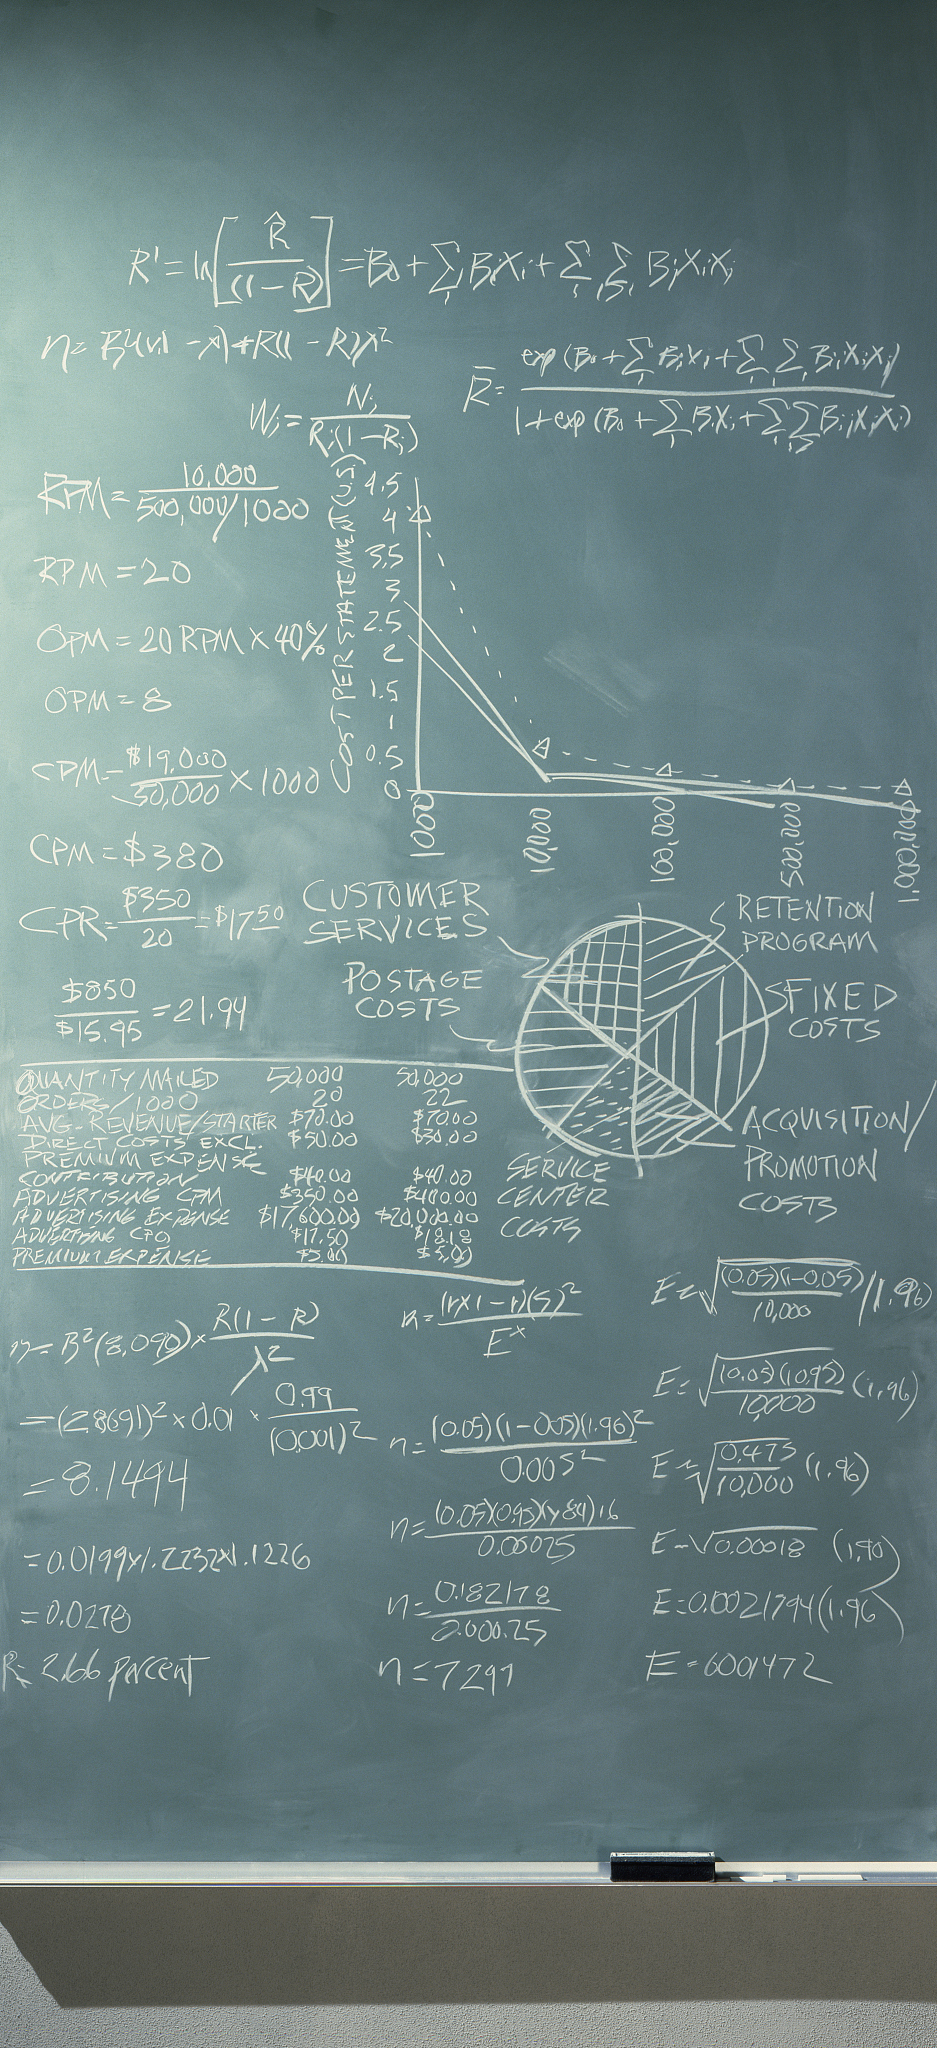 R' = ln[R̂/(1-R)] = B₀ + Σᵢ BᵢXᵢ + Σᵢ Σⱼ BᵢⱼXᵢXⱼ
R̄ = exp(B₀ + Σᵢ BᵢXᵢ + Σᵢ Σⱼ BᵢⱼXᵢXⱼ) / 1 + exp(B₀ + Σᵢ BᵢXᵢ + ΣᵢΣⱼ BᵢⱼXᵢXⱼ)
Wⱼ = Nⱼ/Rⱼ(1-Rⱼ)
RPM = 10,000/500,000/1000
RPM = 20
OPM = 20 RPM × 40%
OPM = 8
CPM = $19,000/50,000 × 1000
CPM = $380
CPR = $350/20 = $17 50
$850/$15.95 = 21.94
COST PER STATEMENT (U.S.)
4.5
4
3.5
3
2.5
2
1.5
1
0.5
0
1000
10,000
100,000
500,000
CUSTOMER
SERVICES
POSTAGE
COSTS
RETENTION
PROGRAM
FIXED
COSTS
ACQUISITION/
PROMOTION
COSTS
SERVICE
CENTER
COSTS
QUANTITY MAILED 50,000 50,000
ORDERS/1000 20 22
AVG-REVENUE/STARTER $70.00 $70.00
DIRECT COSTS EXCL. $30.00 $30.00
PREMIUM EXPENSE
CONTRIBUTION $40.00 $40.00
ADVERTISING CPM $350.00 $400.00
ADVERTISING EXPENSE $17,600.00 $20,000.00
ADVERTISING CPO $17.50 $18.18
PREMIUM EXPENSE $5.00 $5.00
n = B²(8,090) × R(1-R)/λ²
= (2.8691)² × 0.01 × 0.99/(0.001)²
= 8.1494
= 0.0199×1.2232×1.1226
= 0.0278
R = 2.66 percent
n = (r×1-r)(S)²/Eˣ
n = (0.05)(1-0.05)(1.96)²/0.005²
n = 0.182178/0.00025
n = 7291
E = √(0.05)(1-0.05)/10,000 (1.96)
E = √(0.05)(0.95)/10,000 (1.96)
E = √0.475/10,000 (1.96)
E = √0.00018 (1.90)
E = 0.0021794(1.96)
E = 6001472